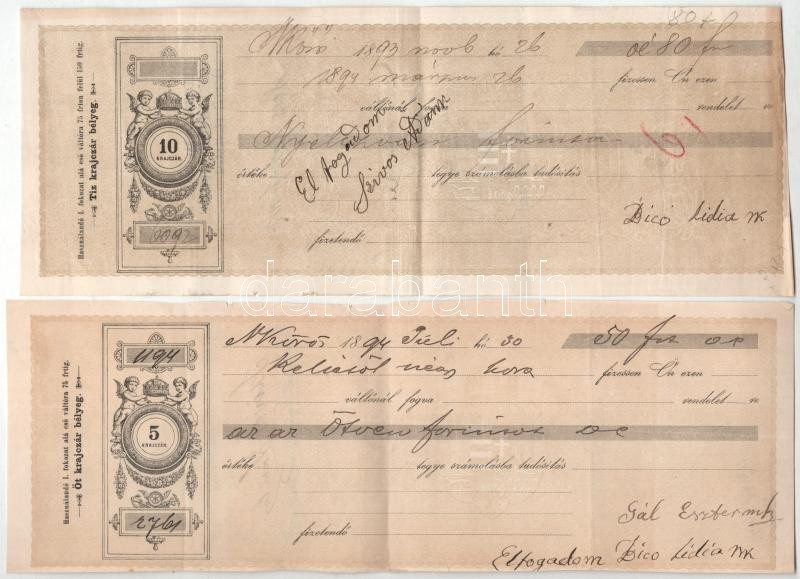 Használandó I. fokozat alá eső váltóra 75 frton felül 150 frtig.
Tíz krajczár bélyeg.
10
KRAJCZÁR.
80 f
1893 novb hó 26
oé 80 frt
1894 márczius 26
fizessen Ön ezen
váltónál fogva
rendelet
Nyolczvan forintot
értéke
tegye számolásba tudósítás
El fogadom
Szivos Ádám
61
Bicó Lidia mk
fizetendő
darabanth
Használandó I. fokozat alá eső váltóra 75 frtig.
Öt krajczár bélyeg.
1194
5
KRAJCZÁR.
2761
NKőrös 1894 Juli hó 30
50 frt oe
Keltétől négy hóra
fizessen Ön ezen
váltónál fogva
rendelet
az az Ötven forintot oe
értéke
tegye számolásba tudósítás
fizetendő
Gál Eszter mk
Elfogadom Bico Lidia mk